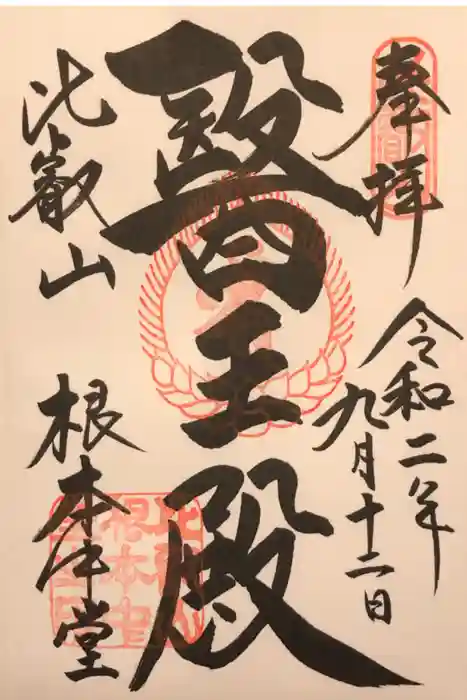 奉拝
令和二年
九月十二日
醫王殿
比叡山
根本中堂